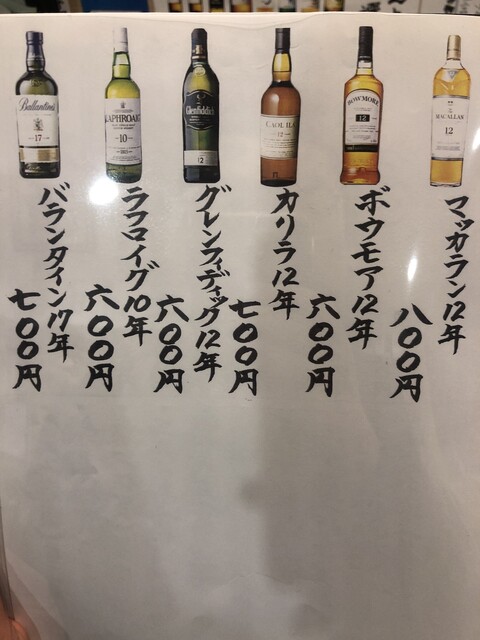 マッカラン12年
八〇〇円
ボウモア12年
六〇〇円
カリラ12年
七〇〇円
グレンフィディック12年
六〇〇円
ラフロイグ10年
六〇〇円
バランタイン17年
七〇〇円
MACALLAN
12
BOWMORE
12
CAOL ILA
12
Glenfiddich
12
LAPHROAIG
10
Ballantine's
17